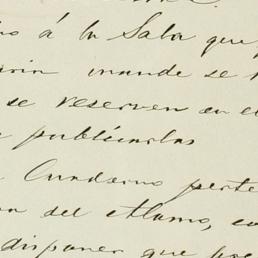 á la Sala que
mande se
se reserven en el
publicarlas
Cuaderno perte
del Alamo, co
disponer que